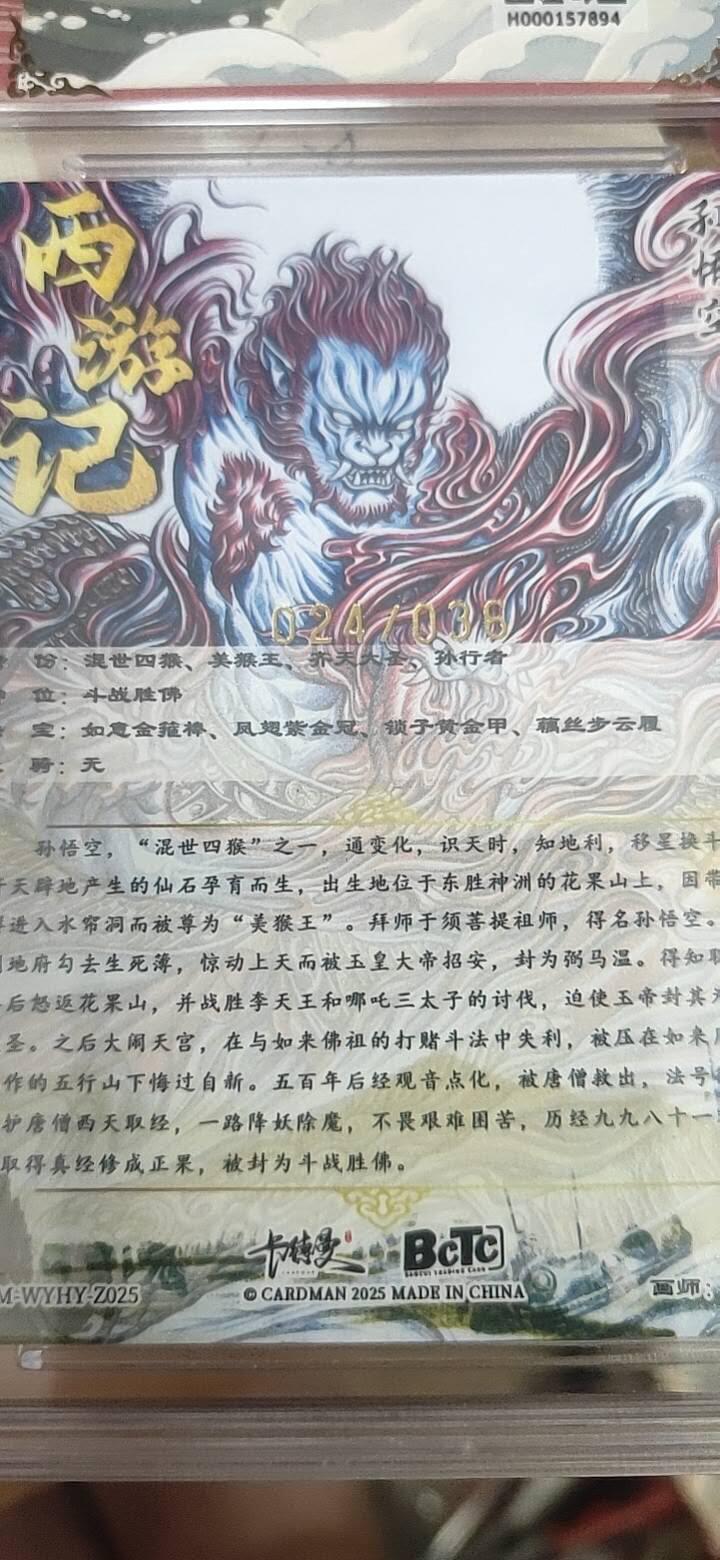 H000157894
西游记
悟空
024/038
份：混世四猴、美猴王、齐天大圣、孙行者
位：斗战胜佛
宝：如意金箍棒、凤翅紫金冠、锁子黄金甲、藕丝步云履
骑：无
孙悟空，“混世四猴”之一，通变化，识天时，知地利，移星换斗
天辟地产生的仙石孕育而生，出生地位于东胜神洲的花果山上，因带
进入水帘洞而被尊为“美猴王”。拜师于须菩提祖师，得名孙悟空。
地府勾去生死薄，惊动上天而被玉皇大帝招安，封为弼马温。得知职
后怒返花果山，并战胜李天王和哪吒三太子的讨伐，迫使玉帝封其为
圣。之后大闹天宫，在与如来佛祖的打赌斗法中失利，被压在如来
作的五行山下悔过自新。五百年后经观音点化，被唐僧救出，法号
护唐僧西天取经，一路降妖除魔，不畏艰难困苦，历经九九八十一
取得真经修成正果，被封为斗战胜佛。
卡特曼 BCTC
M-WYHY-Z025 © CARDMAN 2025 MADE IN CHINA 画师：